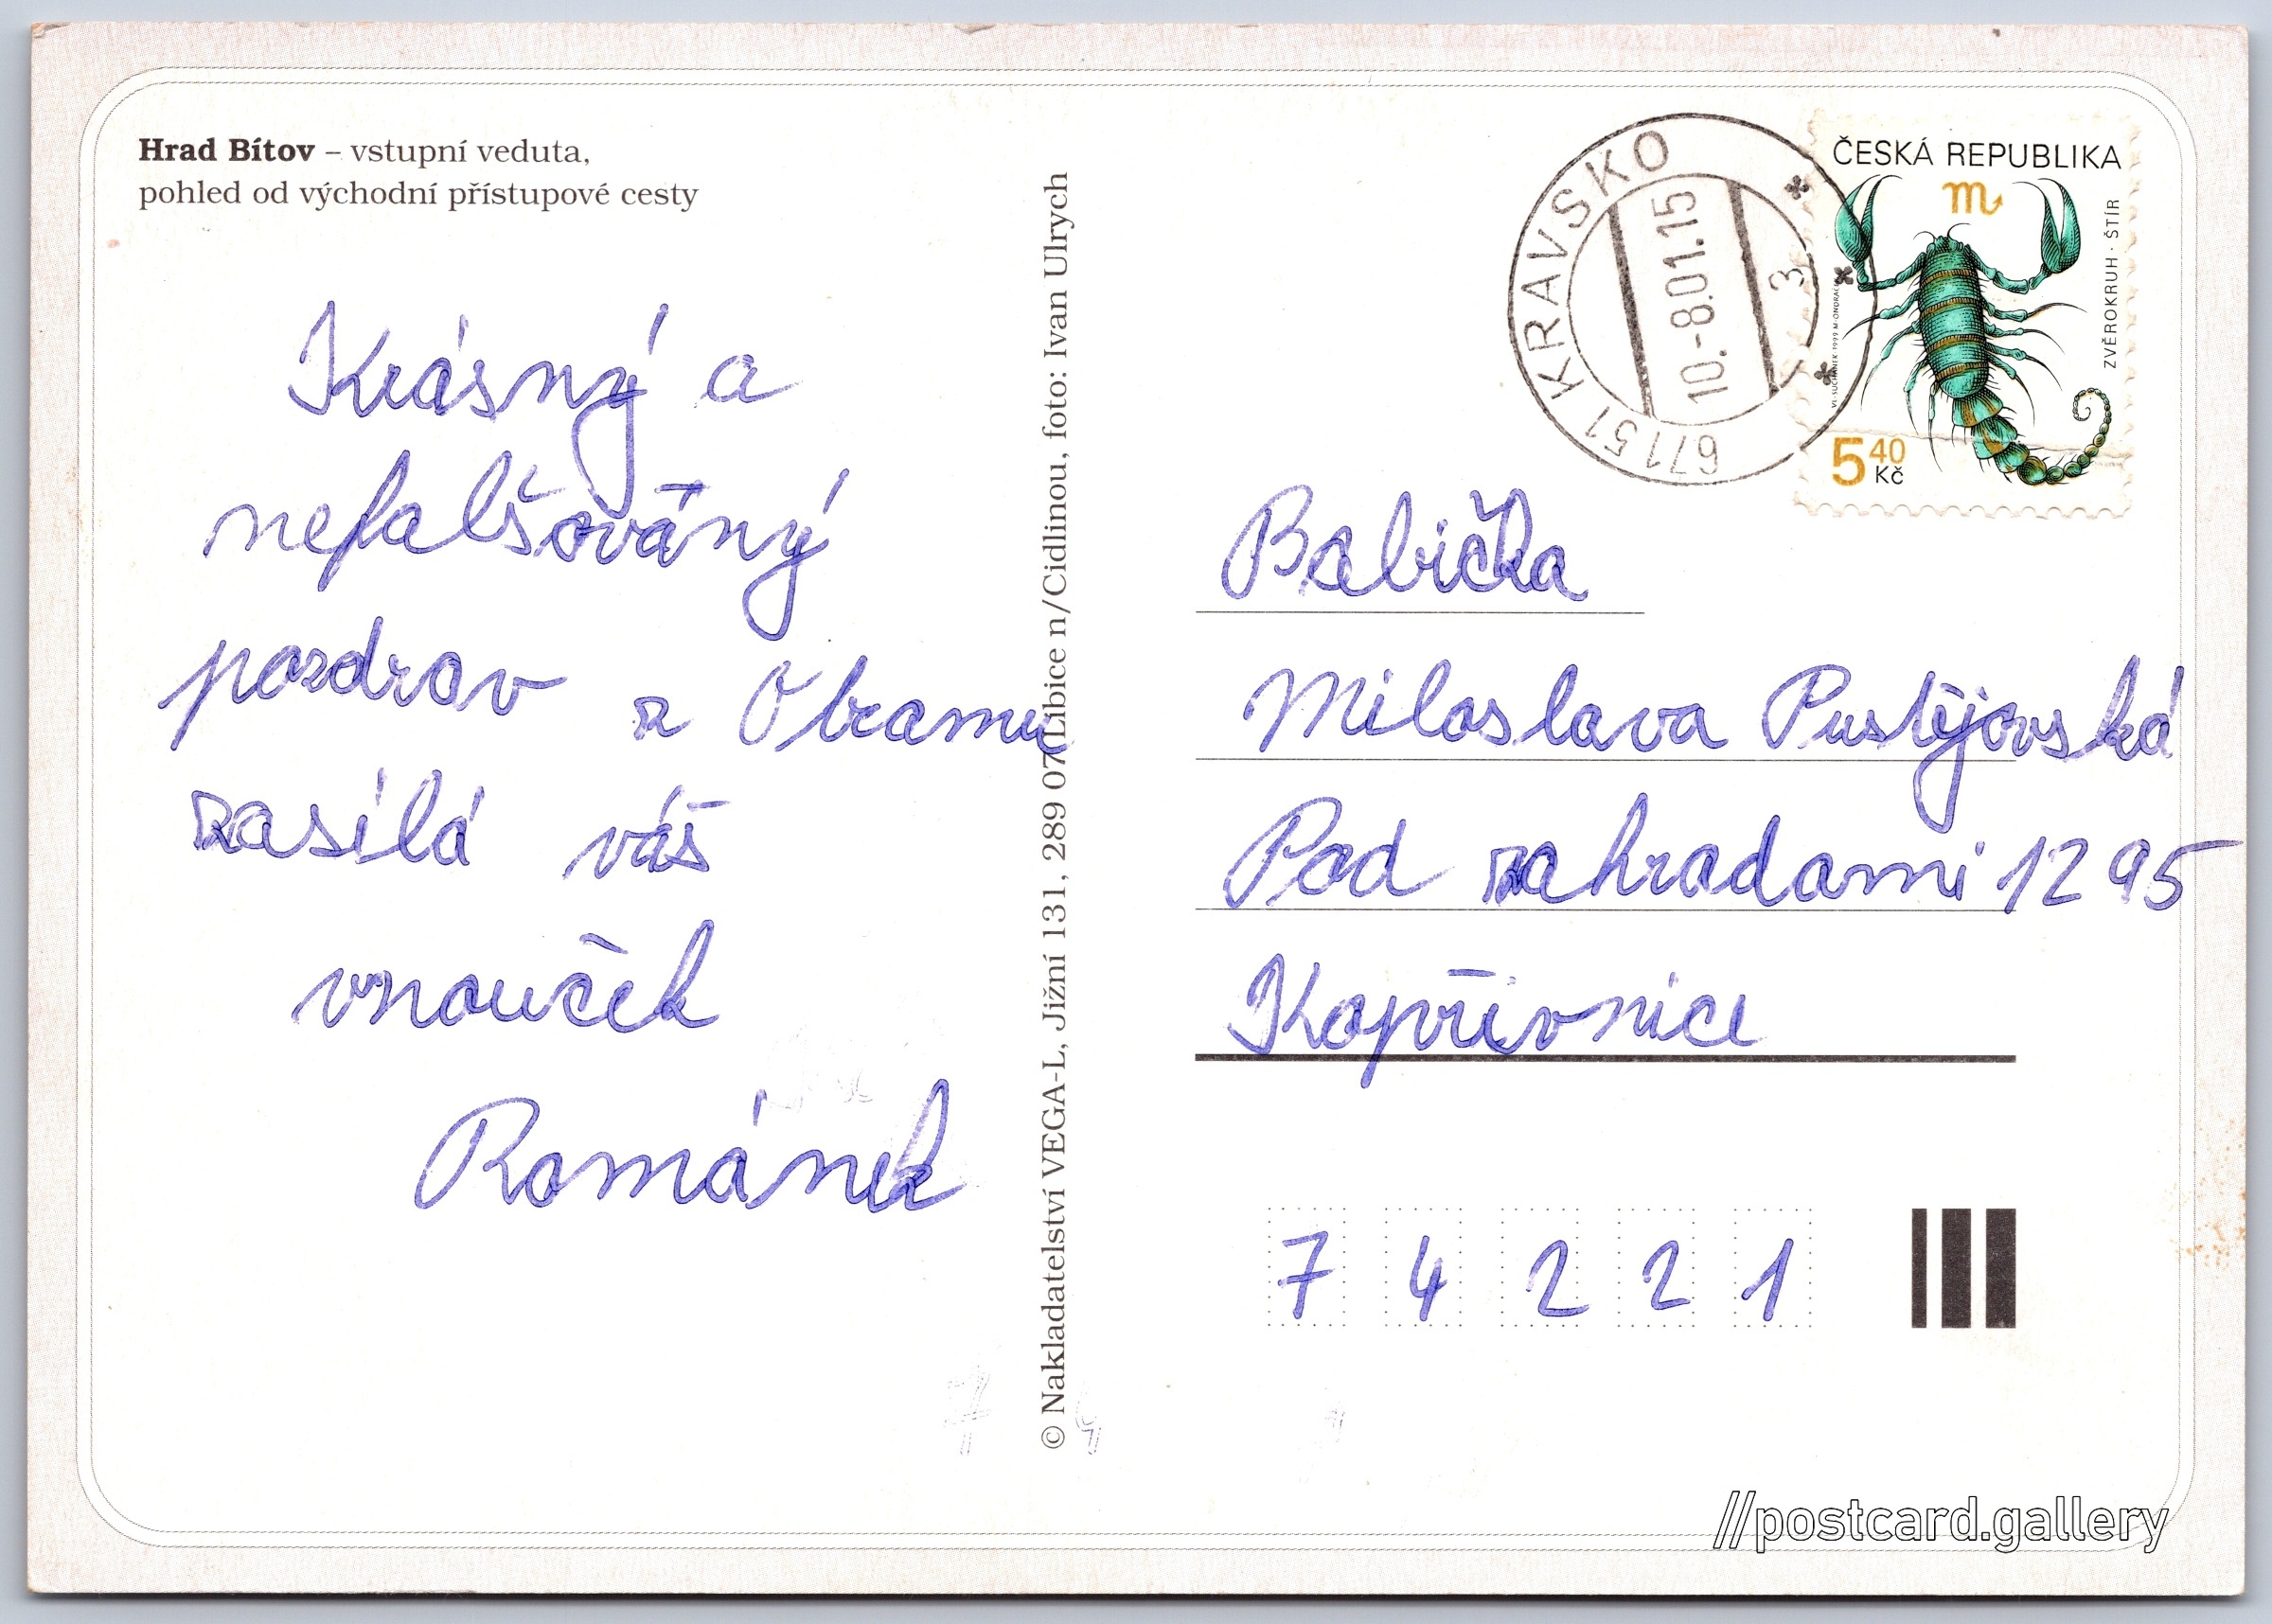 Hrad Bítov – vstupní veduta,
pohled od východní přístupové cesty
Krásný a
nefalšováný
pozdrav z Obramu
zasílá váš
vnouček
Románek
© Nakladatelství VEGA-L, Jižní 131, 289 07 Libice n/Cidlinou, foto: Ivan Ulrych
67151 KRAVSKO
10.-8.01.15
3
ČESKÁ REPUBLIKA
ZVĚROKRUH · ŠTÍR
5 40
Kč
Babička
Miloslava Pustějovská
Pod zahradami 1295
Kopřivnice
7 4 2 2 1
//postcard.gallery